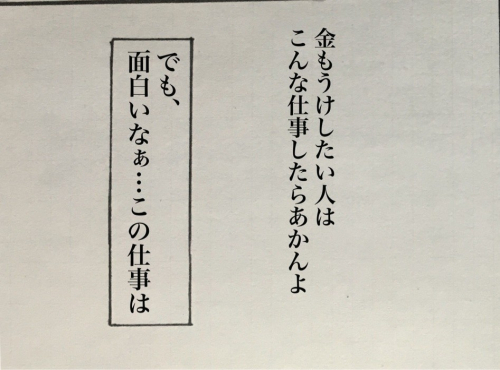 金もうけしたい人は
こんな仕事したらあかんよ
でも、
面白いなぁ…この仕事は